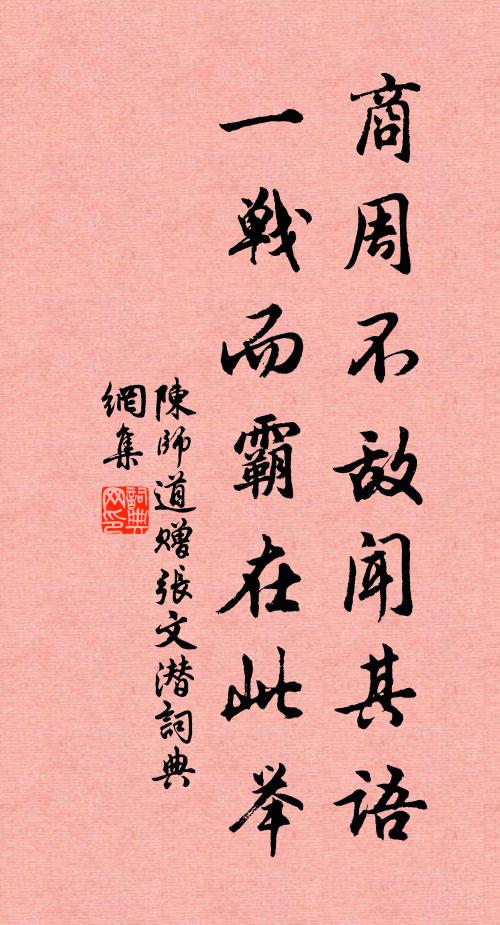 商周不敌闻其语
一戦而霸在此举
陳師道赠張文潜詞典
網集
詞典网印